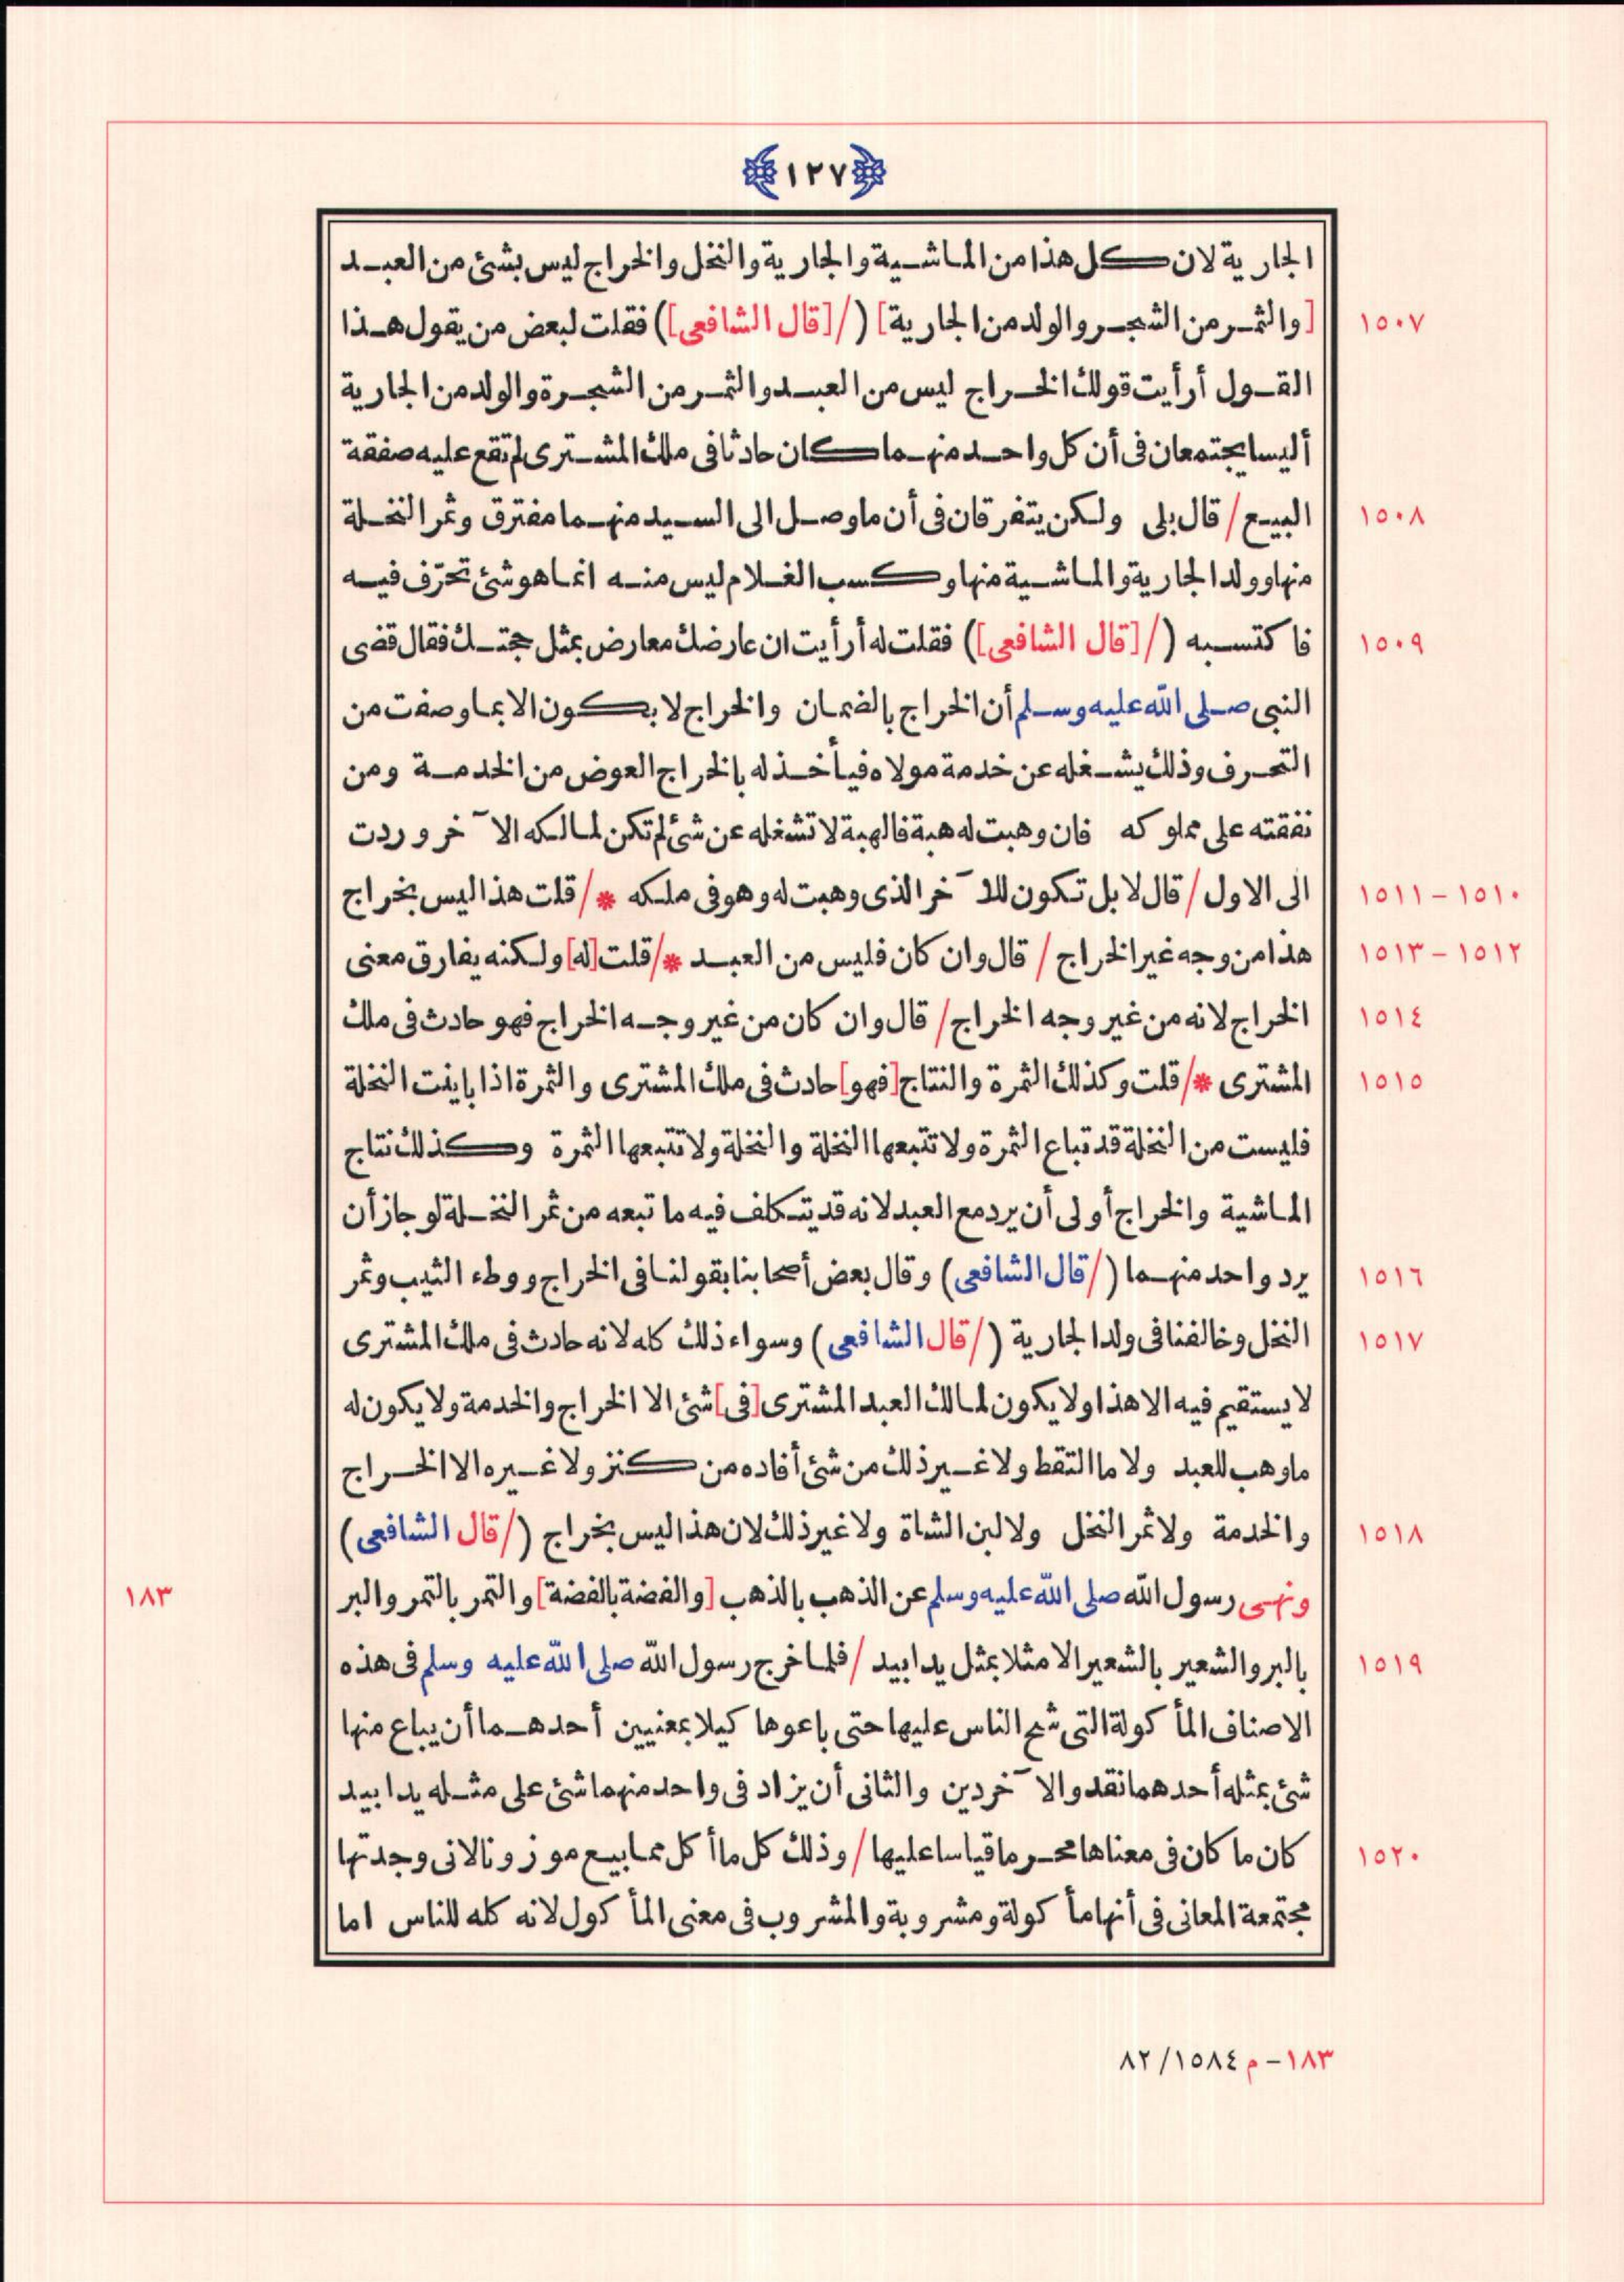 ١٢٧
الجارية لان كل هذا من الماشية والجارية والنخل والخراج ليس بشئ من العبد
١٥٠٧ [والثمر من الشجر والولد من الجارية] (/[قال الشافعى]) فقلت لبعض من يقول هذا
القول أرأيت قولك الخراج ليس من العبد والثمر من الشجرة والولد من الجارية
أليسا يجتمعان فى أن كل واحد منهما كان حادثا فى ملك المشترى لم تقع عليه صفقة
١٥٠٨ البيع / قال بلى ولكن يتفرقان فى أن ما وصل الى السيد منهما مفترق وثمر النخلة
منها وولد الجارية والماشية منها وكسب الغلام ليس منه انما هو شئ تحرّف فيه
١٥٠٩ فاكتسبه (/[قال الشافعى]) فقلت له أرأيت ان عارضك معارض بمثل حجتك فقال قضى
النبى صلى الله عليه وسلم أن الخراج بالضمان والخراج لا يكون الا بما وصفت من
التحرف وذلك يشغله عن خدمة مولاه فيأخذ له بالخراج العوض من الخدمة ومن
نفقته على مملوكه فان وهبت له هبة فالهبة لا تشغله عن شئ لم تكن لمالكه الآخر وردت
١٥١٠ – ١٥١١ الى الاول / قال لا بل تكون للآخر الذى وهبت له وهو فى ملكه */ قلت هذا ليس بخراج
١٥١٢ – ١٥١٣ هذا من وجه غير الخراج / قال وان كان فليس من العبد */ قلت [له] ولكنه يفارق معنى
١٥١٤ الخراج لانه من غير وجه الخراج / قال وان كان من غير وجه الخراج فهو حادث فى ملك
١٥١٥ المشترى */ قلت وكذلك الثمرة والنتاج [فهو] حادث فى ملك المشترى والثمرة اذا باينت النخلة
فليست من النخلة قد تباع الثمرة ولا تتبعها النخلة والنخلة ولا تتبعها الثمرة وكذلك نتاج
الماشية والخراج أولى أن يرد مع العبد لانه قد يتكلف فيه ما تبعه من ثمر النخلة لو جاز أن
١٥١٦ يرد واحد منهما (/ قال الشافعى) وقال بعض أصحابنا بقولنا فى الخراج ووطء الثيب وثمر
١٥١٧ النخل وخالفنا فى ولد الجارية (/ قال الشافعى) وسواء ذلك كله لانه حادث فى ملك المشترى
لا يستقيم فيه الا هذا ولا يكون لمالك العبد المشترى [فى] شئ الا الخراج والخدمة ولا يكون له
ما وهب للعبد ولا ما التقط ولا غير ذلك من شئ أفاده من كنز ولا غيره الا الخراج
١٥١٨ والخدمة ولا ثمر النخل ولا لبن الشاة ولا غير ذلك لان هذا ليس بخراج (/ قال الشافعى)
ونهى رسول الله صلى الله عليه وسلم عن الذهب بالذهب [والفضة بالفضة] والتمر بالتمر والبر ١٨٣
١٥١٩ بالبر والشعير بالشعير الا مثلا بمثل يدا بيد / فلما خرج رسول الله صلى الله عليه وسلم فى هذه
الاصناف المأكولة التى شح الناس عليها حتى باعوها كيلا بمعنيين أحدهما أن يباع منها
شئ بمثله أحدهما نقد والآخر دين والثانى أن يزاد فى واحد منهما شئ على مثله يدا بيد
١٥٢٠ كان ما كان فى معناها محرما قياسا عليها / وذلك كل ما أكل مما بيع موزونا لانى وجدتها
مجتمعة المعانى فى أنها مأكولة ومشروبة والمشروب فى معنى المأكول لانه كله للناس اما
١٨٣ – م ١٥٨٤ / ٨٢